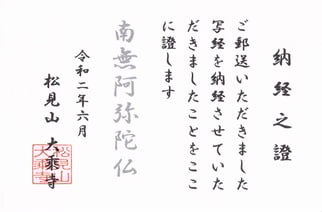 納経之證
ご郵送いただきました
写経を納経させていた
だきましたことをここ
に證します
南無阿弥陀仏
令和二年六月
松見山 大乘寺
松見山
大乘寺